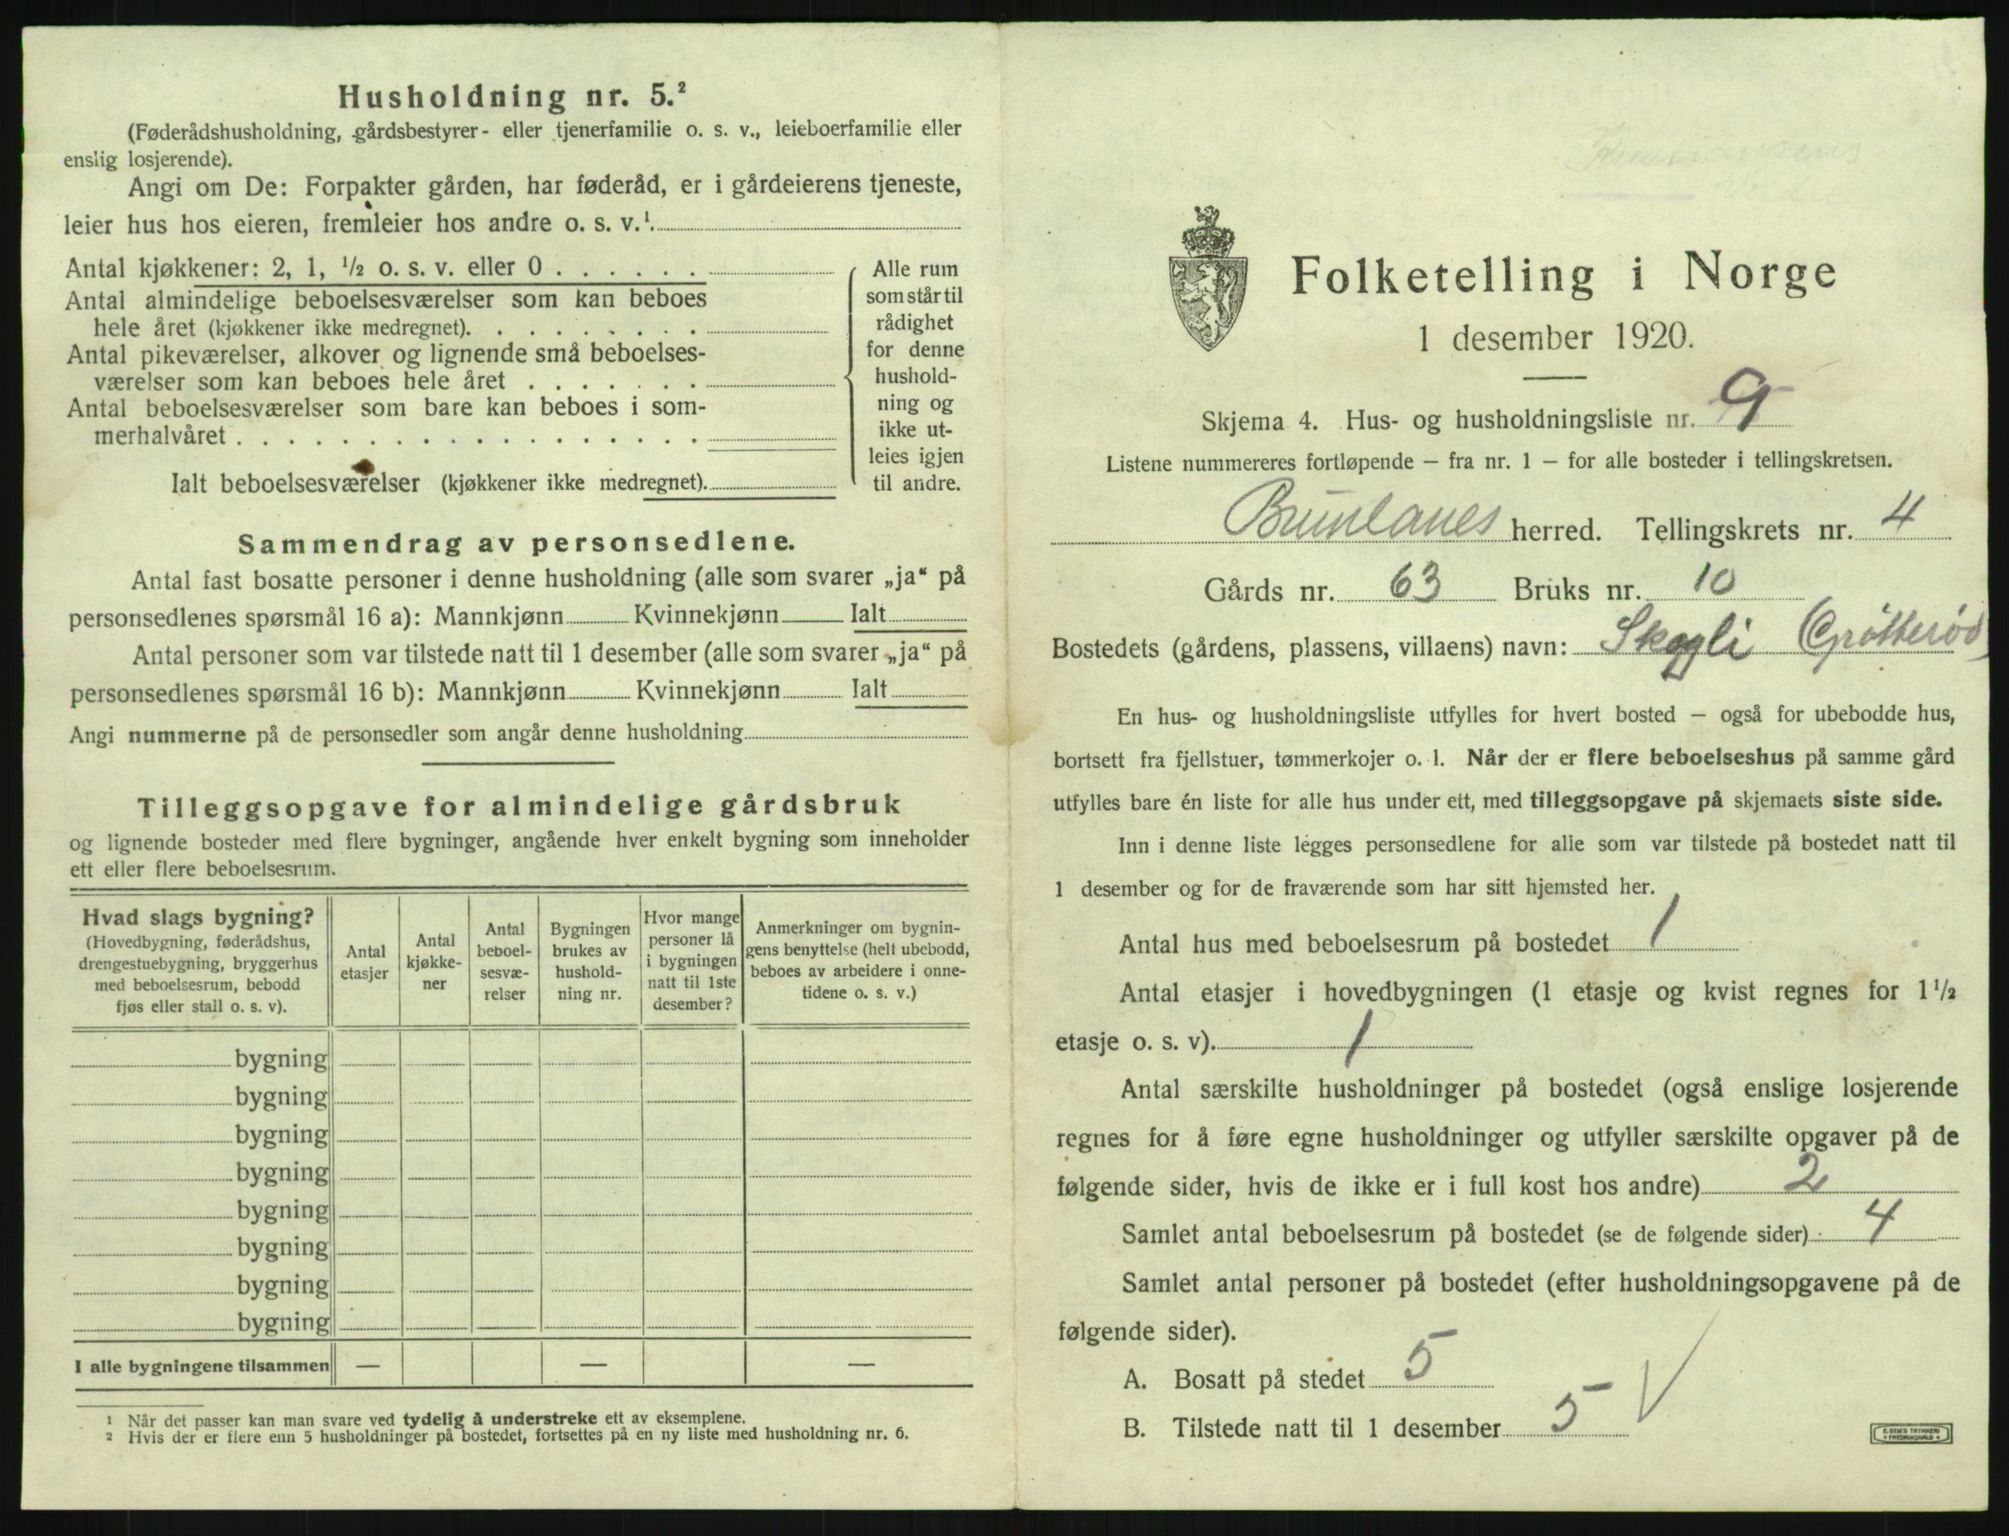 Husholdning nr. 5.²
(Føderådshusholdning, gårdsbestyrer- eller tjenerfamilie o. s. v., leieboerfamilie eller
enslig losjerende).
Angi om De: Forpakter gården, har føderåd, er i gårdeierens tjeneste,
leier hus hos eieren, fremleier hos andre o. s. v.¹
Antal kjøkkener: 2, 1, ½ o. s. v. eller 0 . . . . . .
Antal almindelige beboelsesværelser som kan beboes
hele året (kjøkkener ikke medregnet). . . . . . . . .
Antal pikeværelser, alkover og lignende små beboelses-
værelser som kan beboes hele året . . . . . . .
Antal beboelsesværelser som bare kan beboes i som-
merhalvåret . . . . . . . . . . . . . . . . . .
Ialt beboelsesværelser (kjøkkener ikke medregnet).
Alle rum
som står til
rådighet
for denne
hushold-
ning og
ikke ut-
leies igjen
til andre.
Sammendrag av personsedlene.
Antal fast bosatte personer i denne husholdning (alle som svarer „ja“ på
personsedlenes spørsmål 16 a): Mannkjønn Kvinnekjønn Ialt
Antal personer som var tilstede natt til 1 desember (alle som svarer „ja“ på
personsedlenes spørsmål 16 b): Mannkjønn Kvinnekjønn Ialt
Angi nummerne på de personsedler som angår denne husholdning
Tilleggsopgave for almindelige gårdsbruk
og lignende bosteder med flere bygninger, angående hver enkelt bygning som inneholder
ett eller flere beboelsesrum.
Hvad slags bygning?
(Hovedbygning, føderådshus,
drengestuebygning, bryggerhus
med beboelsesrum, bebodd
fjøs eller stall o. s. v).
Antal
etasjer
Antal
kjøkke-
ner
Antal
beboel-
sesvæ-
relser
Bygningen
brukes av
hushold-
ning nr.
Hvor mange
personer lå
i bygningen
natt til 1ste
desember?
Anmerkninger om bygnin-
gens benyttelse (helt ubebodd,
beboes av arbeidere i onne-
tidene o. s. v.)
bygning
bygning
bygning
bygning
bygning
bygning
bygning
bygning
I alle bygningene tilsammen — — —
¹ Når det passer kan man svare ved tydelig å understreke ett av eksemplene.
² Hvis der er flere enn 5 husholdninger på bostedet, fortsettes på en ny liste med husholdning nr. 6.
Folketelling i Norge
1 desember 1920.
Skjema 4. Hus- og husholdningsliste nr. 9
Listene nummereres fortløpende — fra nr. 1 — for alle bosteder i tellingskretsen.
Brunlanes herred. Tellingskrets nr. 4
Gårds nr. 63 Bruks nr. 10
Bostedets (gårdens, plassens, villaens) navn: Skogli (Grøtterød)
En hus- og husholdningsliste utfylles for hvert bosted — også for ubebodde hus,
bortsett fra fjellstuer, tømmerkojer o. l. Når der er flere beboelseshus på samme gård
utfylles bare én liste for alle hus under ett, med tilleggsopgave på skjemaets siste side.
Inn i denne liste legges personsedlene for alle som var tilstede på bostedet natt til
1 desember og for de fraværende som har sitt hjemsted her.
Antal hus med beboelsesrum på bostedet 1
Antal etasjer i hovedbygningen (1 etasje og kvist regnes for 1½
etasje o. s. v). 1
Antal særskilte husholdninger på bostedet (også enslige losjerende
regnes for å føre egne husholdninger og utfyller særskilte opgaver på de
følgende sider, hvis de ikke er i full kost hos andre) 2
Samlet antal beboelsesrum på bostedet (se de følgende sider) 4
Samlet antal personer på bostedet (efter husholdningsopgavene på de
følgende sider).
A. Bosatt på stedet 5
B. Tilstede natt til 1 desember 5 V
E. SEM'S TRYKKERI
FREDRIKSHALD